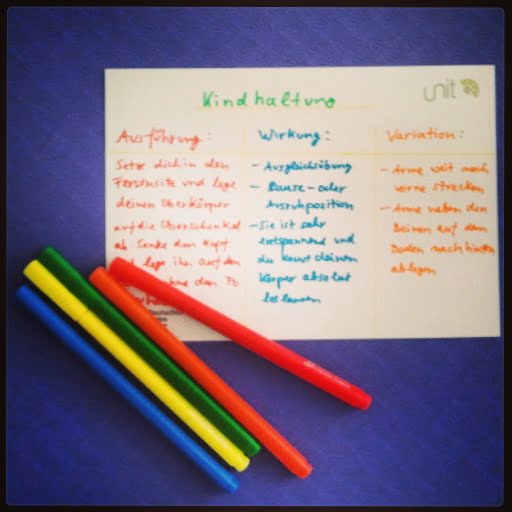 Kindhaltung
unit
Ausführung:
Setze dich in den
Fersensitz und lege
deinen Oberkörper
auf die Oberschenkel
ab. Senke den Kopf
und lege ihn auf den
ohne den Po
Wirkung:
- Ausgleichsübung
- Pause- oder
Ausruhposition
- Sie ist sehr
entspannend und
du kannst deinen
Körper absolut
los lassen
Variation:
- Arme weit nach
vorne strecken
- Arme neben den
Beinen auf dem
Boden nach hinten
ablegen